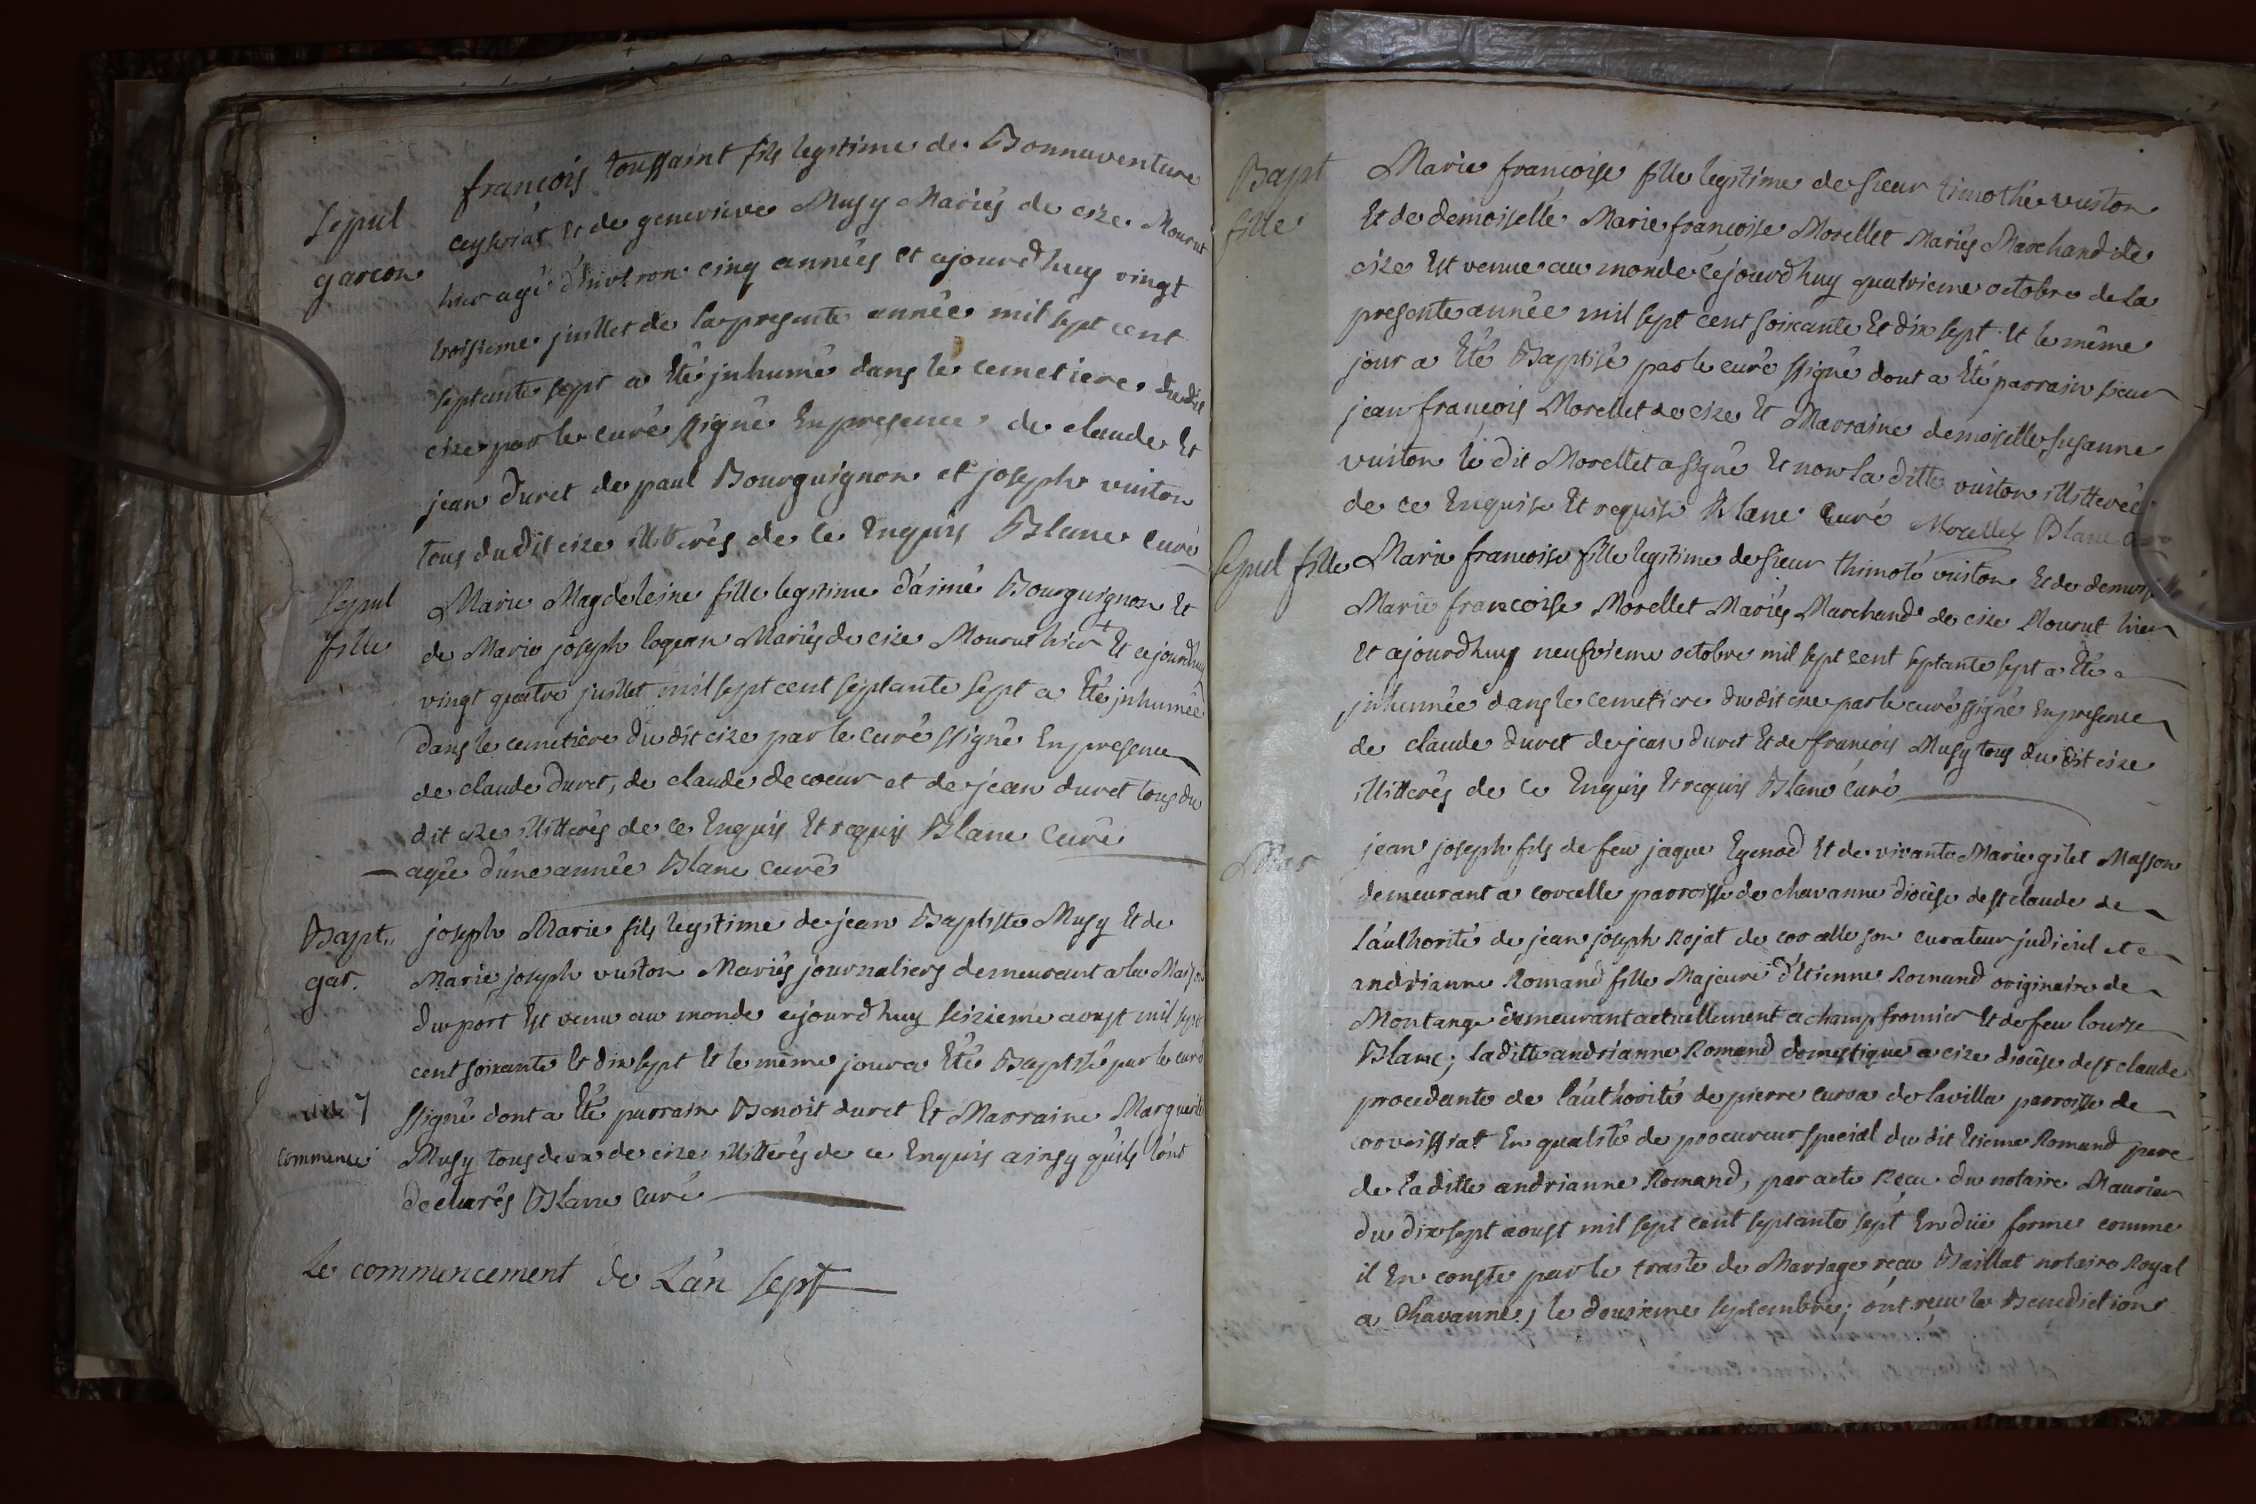 Sepul
garcon
françois toussaint fils legitime de Bonnaventure
ceyseriat Et de genevieve Musy Mariés de cize Mourut
hier agé d'environ cinq années et cejourdhuy vingt
troisieme juillet de la presente année mil sept cent
septante sept a Eté jnhumé dans le cemetiere dudit
cize par le curé ssigné En presence de claude Et
jean duret de paul Bourguignon et joseph vuiton
tous du dit cize illiterés de ce Enquis Blanc Curé
Sepul
fille
Marie Magdeleine fille legitime d'aimé Bourguignon Et
de Marie joseph logean Mariés de cize Mourut hier + Et cejourdhuy
vingt quatre juillet mil sept cent septante sept a Eté jnhumée
dans le cemetiere du dit cize par le Curé ssigné En presence
de claude duret, de claude decoeur et de jean duret tous du
dit cize illiterés de ce Enquis Et requis Blanc Curé
agée d'une année Blanc curé
Bapt
gar.
joseph Marie fils legitime de jean Baptiste Musy Et de
Marie joseph vuiton Mariés journaliers demeurant a la Maison
du port Est venu au monde cejourdhuy seizieme aoust mil sept
cent soixante Et dix sept Et le même jour a Eté Baptisé par le curé
ssigné dont a Eté parrain Benoit duret Et Marraine Marguerite
Musy tous deux de cize illiterés de ce Enquis ainsy qu'ils l'ont
déclarés Blanc Curé
7
commence
Le commencement de L'an sept
Bapt
fille
Marie françoise fille legitime de sieur timothé vuiton
Et de demoiselle Marie françoise Morellet Mariés Marchand de
cize Est venue au monde cejourdhuy quatrieme octobre de la
presente année mil sept cent soixante Et dix sept Et le même
jour a Eté Baptisé par le curé ssigné dont a Eté parrain sieur
jean françois Morellet de cize Et Marraine demoiselle Susanne
vuiton le dit Morellet a signé Et non la ditte vuiton illiterée
de ce Enquise Et requise Blanc Curé Morellet Blanc
Sepul fille
Marie françoise fille legitime de sieur thimoté vuiton Et de
Marie francoise Morellet Mariés Marchand de cize Mourut hier
Et cejourdhuy neufvieme octobre mil sept cent septante sept a Eté
jnhumée dans le cemetiere du dit cize par le curé ssigné En presence
de claude duret de jean duret Et de françois Musy tous du dit cize
illiterés de ce Enquis Et requis Blanc Curé
jean joseph fils de feu jaque Egenod Et de vivante Marie gilet Masson
demeurant a corcelle parroisse de chavanne diocèse de st claude de
l'authorité de jean joseph Rojat de corcelle son curateur judiciel et
andrianne Romand fille Majeure d'Etienne Romand originaire de
Montange demeurant actuellement a champfromier Et de feu louise
Blanc; la ditte andrianne Romand domestique a cize diocèse de st claude
procedante de l'authorité de pierre curva de lavilla parroisse de
corveissiat En qualité de procureur special du dit Etienne Romand pere
de la ditte andrianne Romand, par acte Reçu du notaire Maurier
du dix sept aoust mil sept cent septante sept En düe forme comme
il En conste par le traité de Mariage reçu Baillat notaire Royal
a Chavanne; le douzieme septembre; ont reçu la Benediction